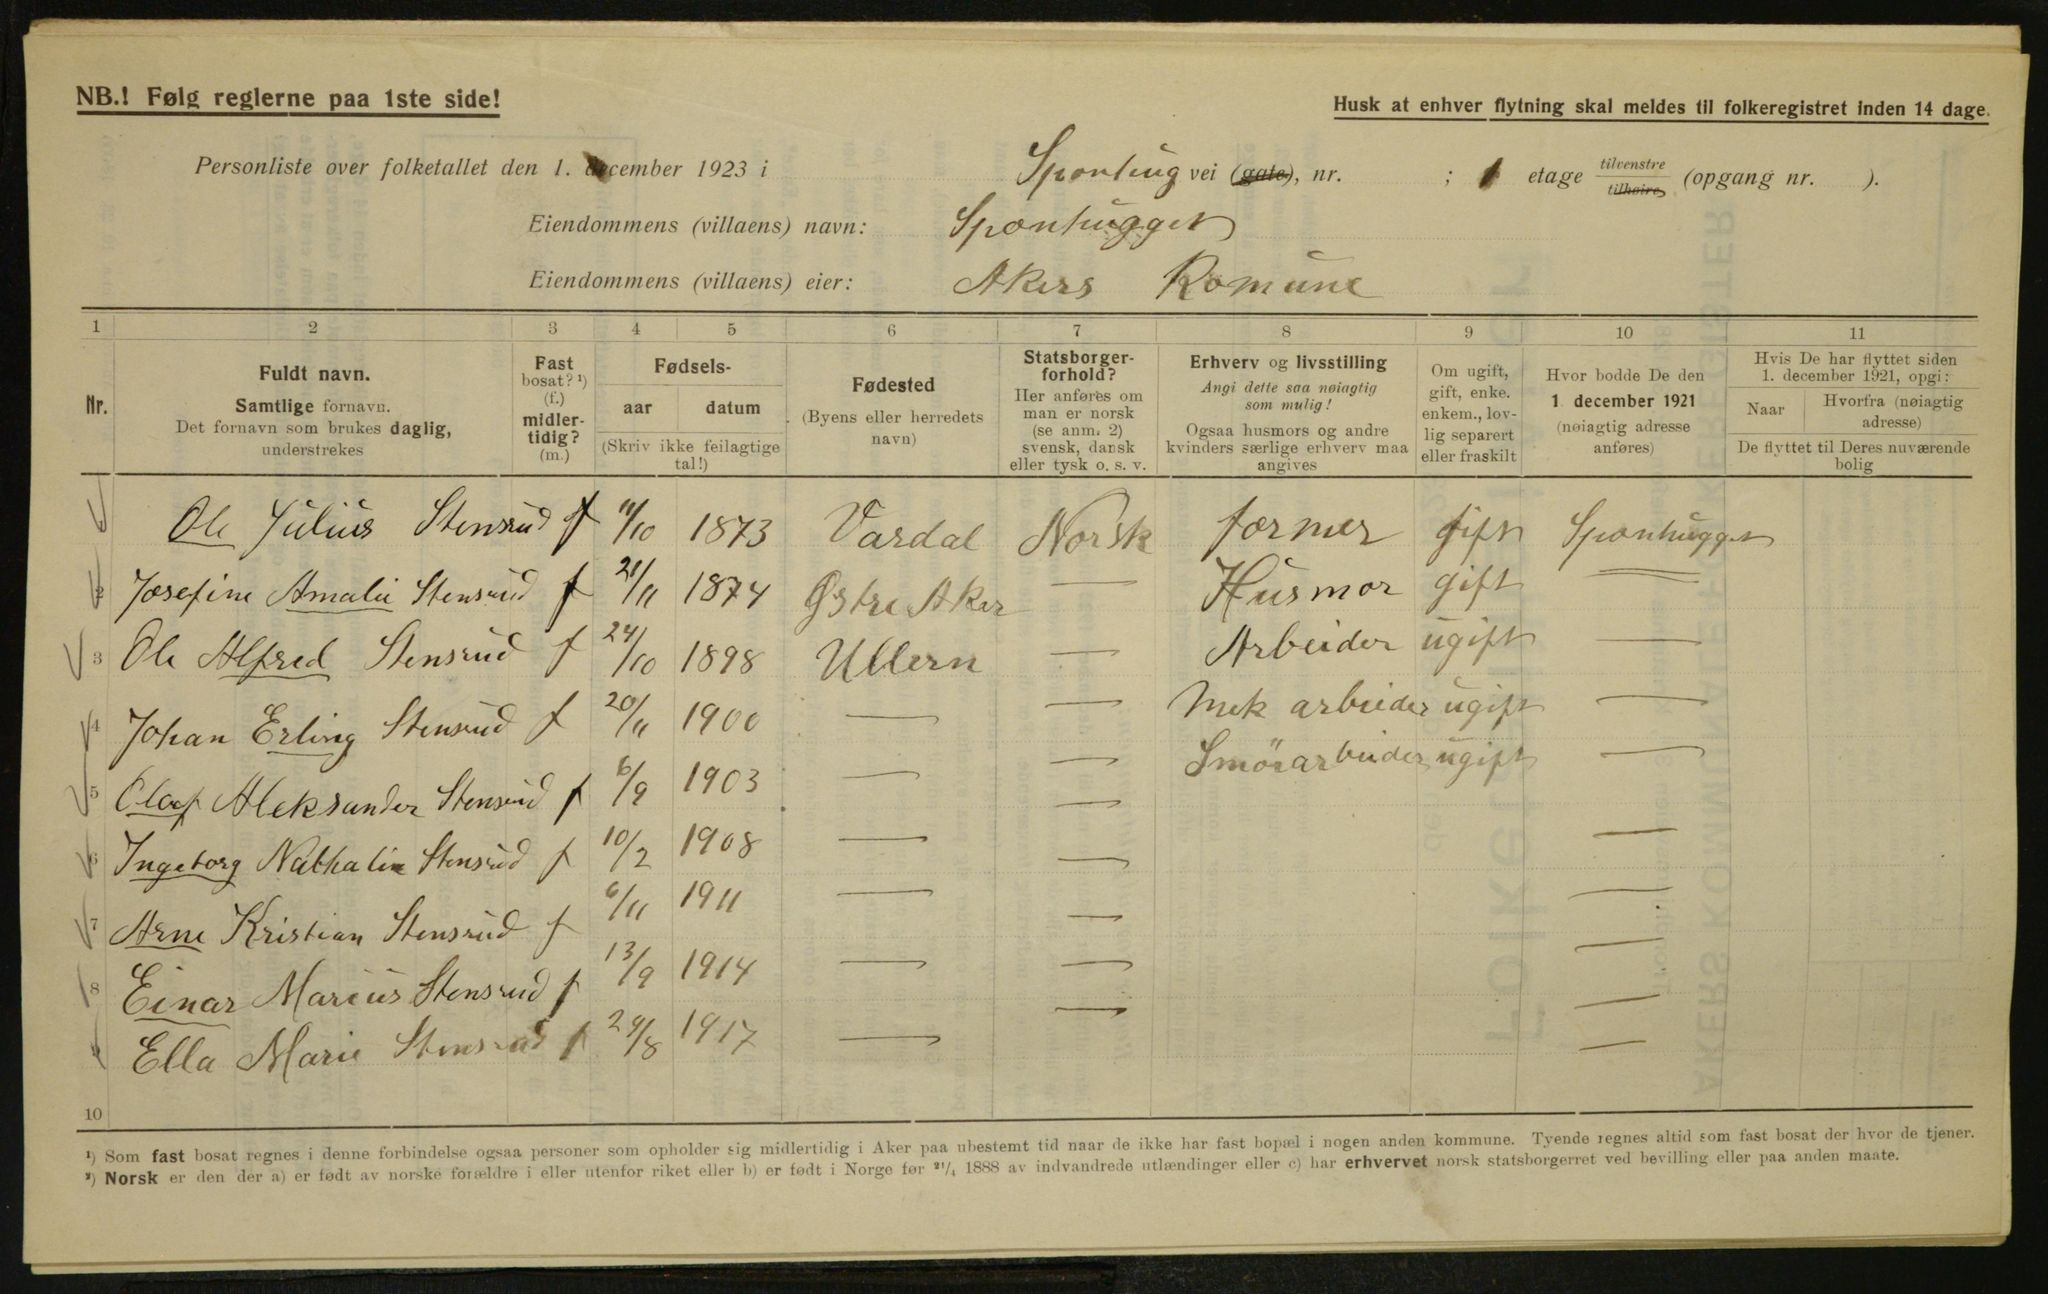 NB.! Følg reglerne paa 1ste side!
Husk at enhver flytning skal meldes til folkeregistret inden 14 dage.
Personliste over folketallet den 1. december 1923 i Sponhug vei (gate), nr. ; 1 etage tilvenstre tilhøire (opgang nr. ).
Eiendommens (villaens) navn: Sponhugget
Eiendommens (villaens) eier: Akers Komune
1 2 3 4 5 6 7 8 9 10 11
Nr.
Fuldt navn.
Samtlige fornavn.
Det fornavn som brukes daglig,
understrekes
Fast
bosat? ¹)
(f.)
midler-
tidig?
(m.)
Fødsels-
aar datum
(Skriv ikke feilagtige
tal!)
Fødested
(Byens eller herredets
navn)
Statsborger-
forhold?
Her anføres om
man er norsk
(se anm. 2)
svensk, dansk
eller tysk o. s. v.
Erhverv og livsstilling
Angi dette saa nøiagtig
som mulig!
Ogsaa husmors og andre
kvinders særlige erhverv maa
angives
Om ugift,
gift, enke.
enkem., lov-
lig separert
eller fraskilt
Hvor bodde De den
1. december 1921
(nøiagtig adresse
anføres)
Hvis De har flyttet siden
1. december 1921, opgi:
Naar Hvorfra (nøiagtig
adresse)
De flyttet til Deres nuværende
bolig
Ole Julius Stensrud f 11/10 1873 Vardal Norsk former gift Sponhugget
2 Josefine Amalie Stensrud f 21/11 1874 Østre Aker — Husmor gift —
3 Ole Alfred Stensrud f 24/10 1898 Ullern — Arbeider ugift —
4 Johan Erling Stensrud f 20/11 1900 — — Mek arbeider ugift —
5 Olaf Aleksander Stensrud f 6/9 1903 — — Smörarbeider ugift —
6 Ingeborg Nathalie Stensrud f 10/2 1908 — — —
7 Arne Kristian Stensrud f 6/11 1911 — — —
8 Einar Marius Stensrud f 13/9 1914 — — —
9 Ella Marie Stensrud f 29/8 1917 — — —
10
¹) Som fast bosat regnes i denne forbindelse ogsaa personer som opholder sig midlertidig i Aker paa ubestemt tid naar de ikke har fast bopæl i nogen anden kommune. Tyende regnes altid som fast bosat der hvor de tjener.
²) Norsk er den der a) er født av norske forældre i eller utenfor riket eller b) er født i Norge før ²¹/₄ 1888 av indvandrede utlændinger eller c) har erhvervet norsk statsborgerret ved bevilling eller paa anden maate.